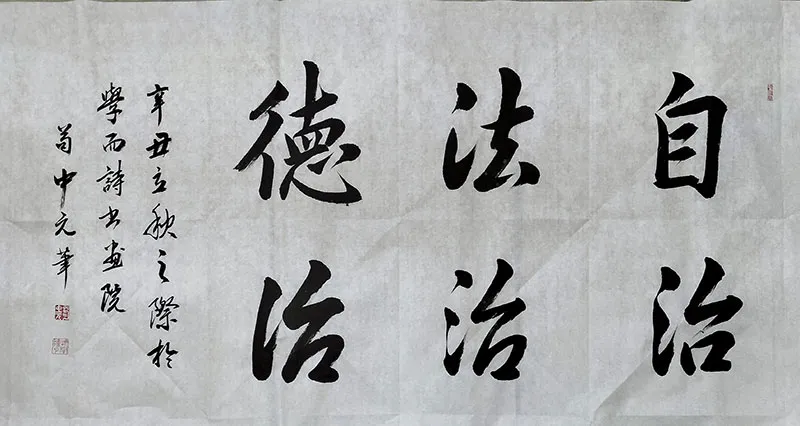 自治
法治
德治
辛丑立秋之際於
學而詩书画院
荀中元筆